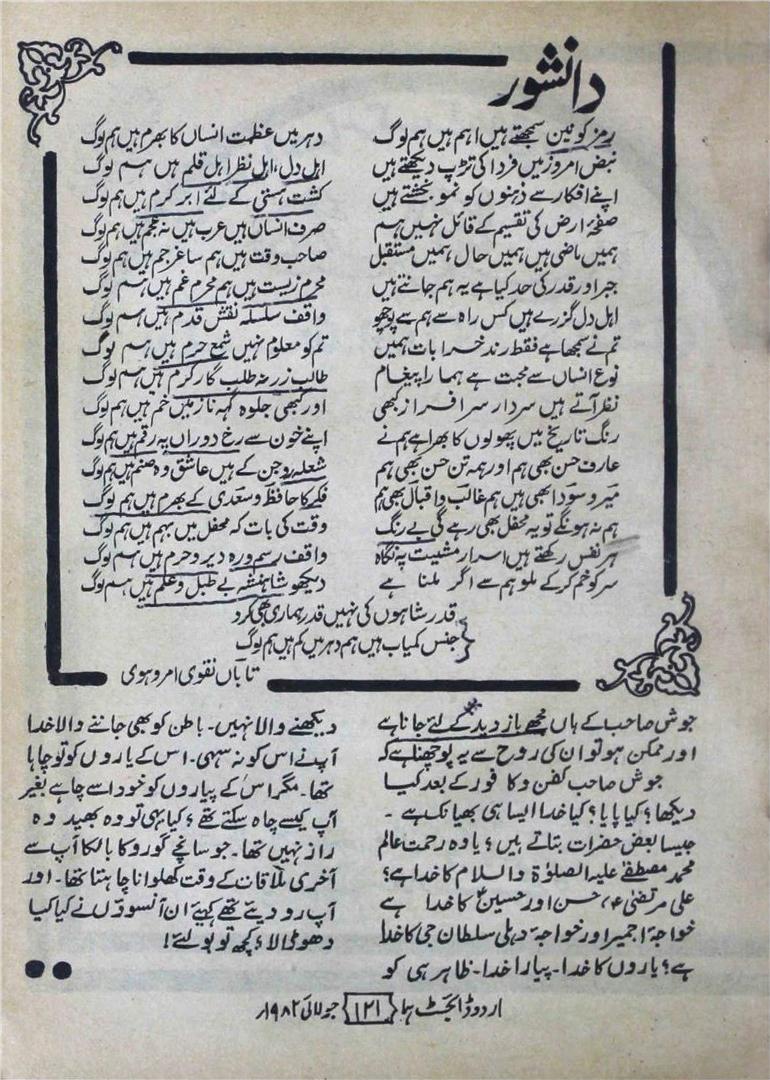 دانشور
رمز کونین سمجھتے ہیں اہم ہیں ہم لوگ
دہر میں عظمت انساں کا بھرم ہیں ہم لوگ
نبض امروز میں فردا کی تڑپ دیکھتے ہیں
اہل دل، اہل نظر اہل قلم ہیں ہم لوگ
اپنے افکار سے ذہنوں کو نمو بخشتے ہیں
کشت ہستی کے لئے ابر کرم ہیں ہم لوگ
صفحۂ ارض کی تقسیم کے قائل نہیں ہم
صرف انساں ہیں عرب ہیں نہ عجم ہیں ہم لوگ
ہمیں ماضی ہیں ہمیں حال ہمیں مستقبل
صاحب وقت ہیں ہم ساغر جم ہیں ہم لوگ
جبر اور قدر کی حد کیا ہے یہ ہم جانتے ہیں
محرم زیست ہیں ہم محرم غم ہیں ہم لوگ
اہل دل گزرے ہیں کس راہ سے ہم سے پوچھو
واقف سلسلہ نقش قدم ہیں ہم لوگ
تم نے سمجھا ہے فقط رند خرابات ہمیں
تم کو معلوم نہیں شمع حرم ہیں ہم لوگ
نوع انساں سے محبت ہے ہمارا پیغام
طالب زر نہ طلب گار کرم ہیں ہم لوگ
نظر آتے ہیں سردار سرافراز کبھی
اور کبھی جلوہ گہہ ناز میں خم ہیں ہم لوگ
رنگ تاریخ میں پھولوں کا بھرا ہے ہم نے
اپنے خون سے رخ دوراں پہ رقم ہیں ہم لوگ
عارف حسن بھی ہم اور ہمہ تن حسن بھی ہم
شعلہ رو جن کے ہیں عاشق وہ صنم ہیں ہم لوگ
میر و سودا بھی ہیں ہم غالب و اقبال بھی ہم
فکر کا حافظ و سعدی کے بھرم ہیں ہم لوگ
ہم نہ ہونگے تو یہ محفل بھی رہے گی بے رنگ
وقت کی بات کہ محفل میں بہم ہیں ہم لوگ
ہر نفس رکھتے ہیں اسرار مشیت پہ نگاہ
واقف رسم و رہ دیر و حرم ہیں ہم لوگ
سر کو خم کر کے ملو ہم سے اگر ملنا ہے
دیکھو شاہنشہ بے طبل و علم ہیں ہم لوگ
قدر شاہوں کی نہیں قدر ہماری بھی کرو
جنس کمیاب ہیں ہم دہر میں کم ہیں ہم لوگ
تاباں نقوی امروہوی
جوش صاحب کے ہاں مجھے بازدید کے لئے جانا ہے
اور ممکن ہو تو ان کی روح سے یہ پوچھنا ہے کہ
جوش صاحب کفن و کافور کے بعد کیا
دیکھا؟ کیا پایا؟ کیا خدا ایسا ہی بھیانک ہے۔
جیسا بعض حضرات بتاتے ہیں؟ یا وہ رحمت عالم
محمد مصطفےٰ علیہ الصلوٰۃ والسلام کا خدا ہے؟
علی مرتضیٰؑ، حسن اور حسینؑ کا خدا ہے
خواجۂ اجمیر اور خواجۂ دہلی سلطان جی کا خدا
ہے؟ یاروں کا خدا۔ پیارا خدا۔ ظاہر ہی کو
دیکھنے والا نہیں۔ باطن کو بھی جاننے والا خدا
آپ نے اس کو نہ سہی۔ اس کے یاروں کو تو چاہا
تھا۔ مگر اس کے پیاروں کو خود اسے چاہے بغیر
آپ کیسے چاہ سکتے تھے؟ کیا یہی تو وہ بھید وہ
راز نہیں تھا۔ جو سانچے گورو کا بالکا آپ سے
آخری ملاقات کے وقت کھلوانا چاہتا تھا۔ اور
آپ رو دیئے تھے کہیے ان آنسوؤں نے کیا کیا
دھو ڈالا؟ کچھ تو بولئے!
اردو ڈائجسٹ ہما ۱۲۱ جولائی ۱۹۸۲ء